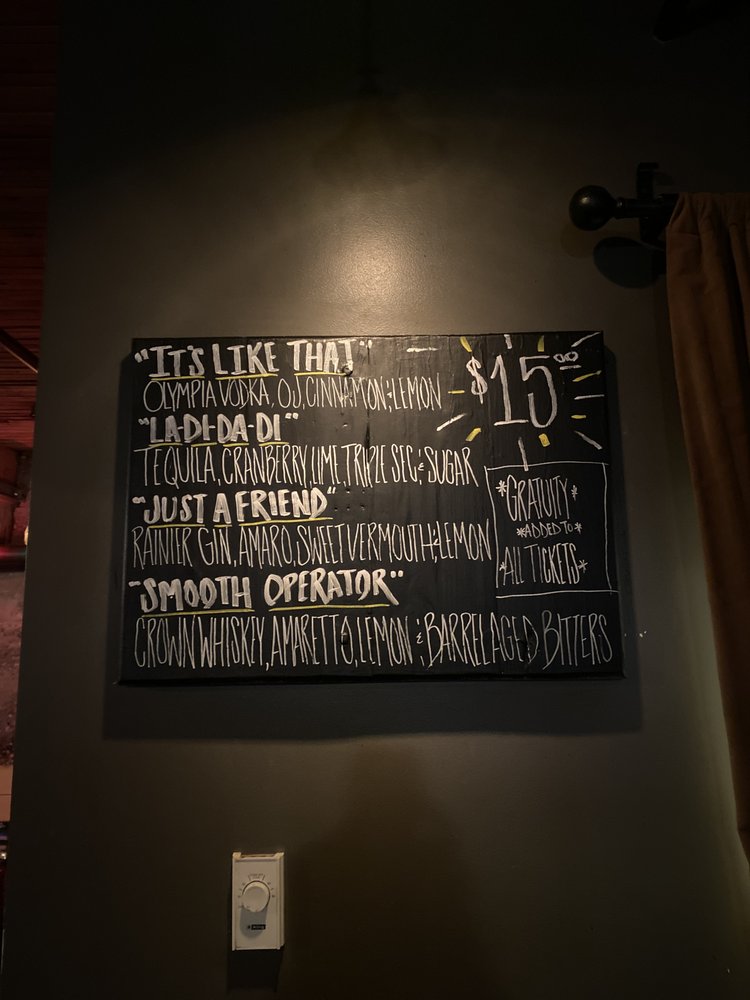 "IT'S LIKE THAT"
OLYMPIA VODKA, OJ, CINNAMON, & LEMON
$15.00
"LA-DI-DA-DI"
TEQUILA, CRANBERRY, LIME, TRIPLE SEC, & SUGAR
"JUST A FRIEND"
RAINIER GIN, AMARO, SWEET VERMOUTH, & LEMON
"SMOOTH OPERATOR"
CROWN WHISKEY, AMARETTO, LEMON & BARREL AGED BITTERS
*GRATUITY*
*ADDED TO*
*ALL TICKETS*